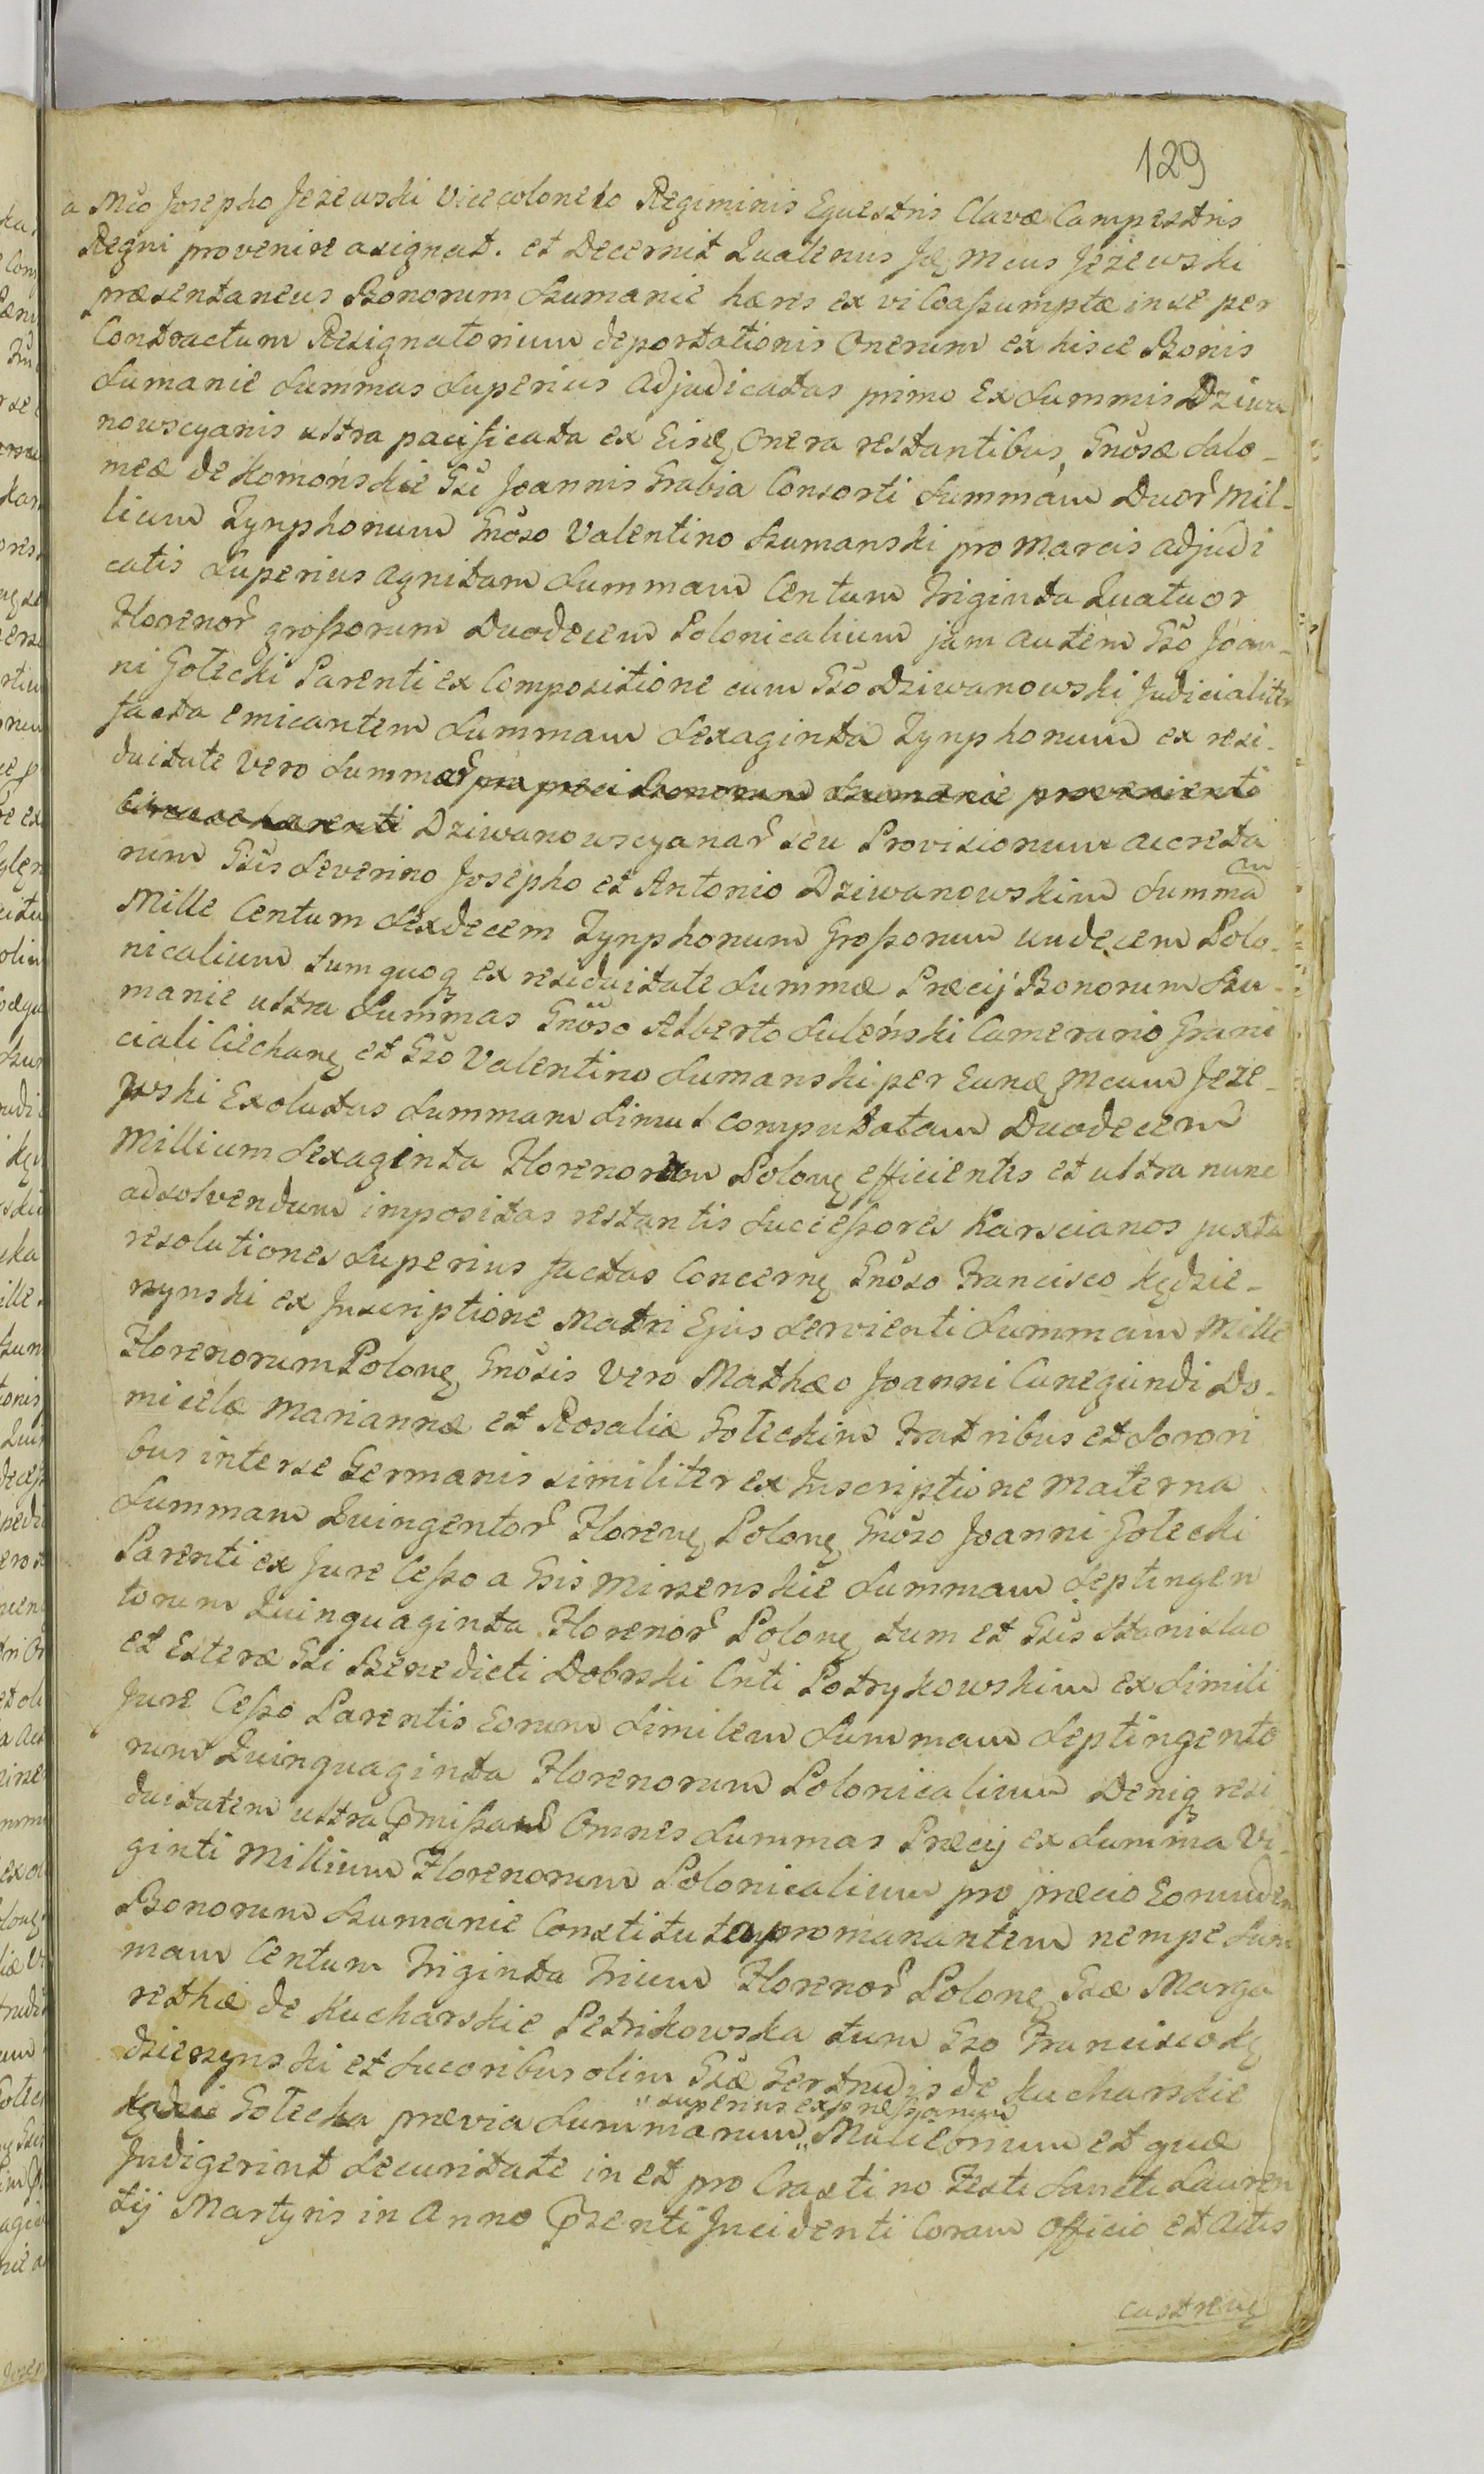 129
a Mco Josepho Jezewski Vicecolonelo Regiminis Equestris Clavæ Campestris
Regni provenire asignat. et Decernit Quatenus Mcus Jeżewski
præsentaneus Bonorum Szumanie hæres ex vi Coassumptæ in se per
Contractum Resignatorium deportationis Onerum ex hisce Bonis
Sumanie Summas Superius Adjudicatas primo Ex Summis Dziwa
nowscyanis ultra pacificata ex Eisdę Onera restantibus, Gnosæ Salo-
meæ de Komońskie Gsi Joannis Grabia Consorti Summam Duor Mil-
lium Tynphonum Gnoso Valentino Szumanski pro Marcis adjudi
catis Superius agnitam Summam Centum Triginta Quatuor
Florenor grossorum Duodecem Polonicalium jam autem Gso Joan-
ni Gołecki Parenti ex Compositione cum Gso Dziwanowski Judicialiter
facta emicantem Summam Sexaginta Tynphonum ex resi-
duitate Vero Summar pro præci Bonorum Szumanie provenienti
Dziwanowscyanar seu Provisionum accreta
rum Gsis Severino Josepho et Antonio Dziwanowskim Summam
Mille Centum Sexdecem Tynphonum Grossorum undecem Polo-
nicalium tum quoq ex residuitate Summæ Præcij Bonorum Szu-
manie ultra Summas Gnoso Alberto Suleński Camerario Grani
ciali Ciechanę et Gso Valentino Sumanski per Eundę Mcum Jeze-
wski Exolutas Summam Simul computatam Duodecem
Millium Sexaginta Florenorum Polonę efficientes et ultra nunc
ad solvendum impositas restantis Successores Karscianos juxta
resolutiones Superius factas Concernę Gnoso Francisco Kędzie-
rzynski ex Inscriptione Matri Ejus Servienti Summam Mille
Florenorum Polonę Gnosis Vero Mathæo Joanni Cunegundi Do-
micelæ Mariannæ et Rosaliæ Gołeckim Fratribus et Sorori
bus inter se Germanis similiter ex Inscriptione Materna
Summam Quingentor Florenę Polonę Gnoso Joanni Gołecki
Parenti ex Jure Cesso a Gsis Mirzenskie Summam Septingen
torum Quinquaginta Florenor Polonę tum et Gsis Stanislao
et Esteræ Gsi Benedicti Dobrski Cnti Potrykowskim ex Simili
Jure Cesso Parentis Eorum Similem Summam Septingento
rum Quinquaginta Florenorum Polonicalium Deniq resi
duitatem ultra Pmissas Omnes Summas Præcij ex Summa Vi-
ginti Millium Florenorum Polonicalium pro præcio Eorundem
Bonorum Szumanie Constituta promanantem nempe Sum
mam Centum Triginta Trium Florenor Polonę Gsæ Marga
rethæ de Kucharskie Petrikowska tum Gso Francisco Kę
dzierzynski et Sucoribus olim Gsæ Gertrudis de Kucharskie
Gołecka prævia Summarum
superius expressarum
Muliebrium et quæ
Indigerint Securitate in et pro Crastino Festi Sancti Lauren
tij Martyris in Anno Psenti Incidenti Coram Officio et Actis
castrenę